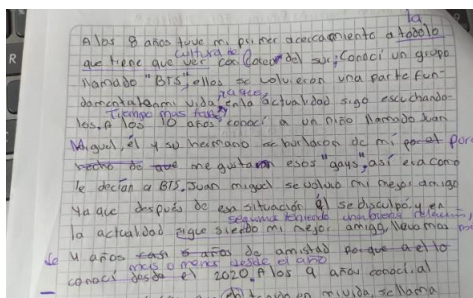 la
A los 8 años tuve mi primer acercamiento a todo lo
cultura de
que tiene que ver con Corea del sur, Conocí un grupo
llamado "BTS", ellos se volvieron una parte fun-
damental en mi vida, en la actualidad sigo escuchando-
Tiempo mas tarde,
los. A los 10 años, conocí a un niño llamado Juan
Miguel, él y su hermano se burlaron de mí por el por
hecho de que me gustaran esos "gays", así era como
le decían a BTS. Juan miguel se volvio mi mejor amigo
ya que después de esa situación él se disculpó y en
seguimos teniendo una buena relación,
la actualidad sigue siendo mi mejor amigo, llevamos
4 años casi 5 años de amistad porque a el lo
mas o menos desde el año
conocí desde el 2020. A los 9 años conocí al
en mi vida, se llama